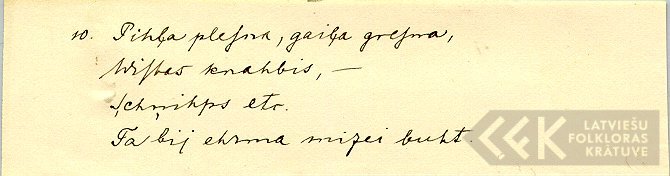 10. Pihļa pleſna, gaiļa greſna,
Wiſtas knahbis, —
Schņihps etc.
Ta bij ehrma miſei buht.
LATVIEŠU
FOLKLORAS
KRĀTUVE